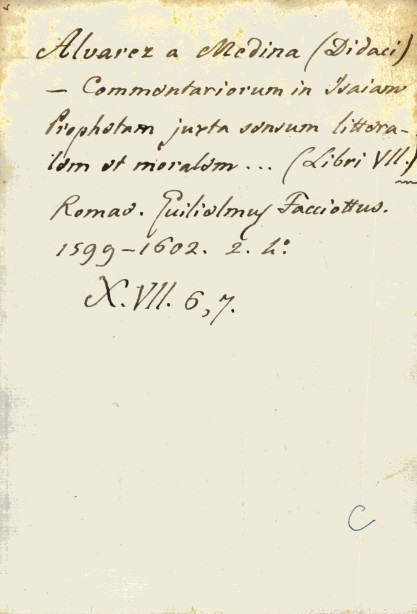 Alvarez a Medina (Didaci)
— Commentariorum in Isaiam
Prophetam juxta sensum littera-
lem et moralem ... (Libri VII.)
Romae. Guilielmus Facciottus.
1599-1602. 2. 4º
X. VII. 6, 7.
C